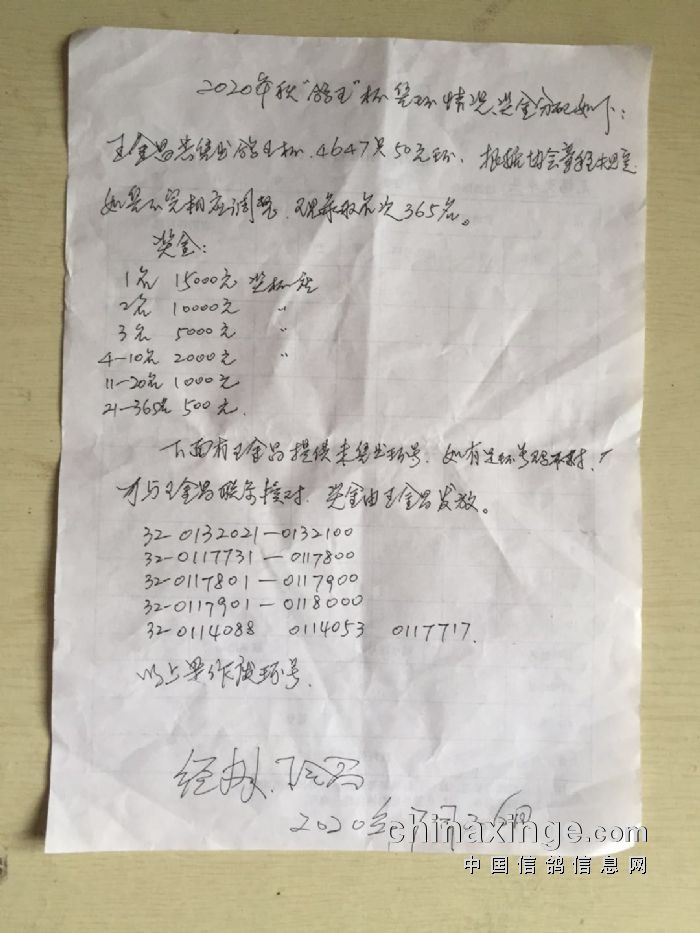 2020年秋“鸽王”杯售环情况、奖金分配如下:
王金昌共售出鸽王杯.4647只50元环、根据协会章程规定
如果不完相应调整、现录取名次365名。
奖金:
1名 15000元 奖杯
2名 10000元 〃
3名 5000元 〃
4-10名 2000元 〃
11-20名 1000元
21-365名 500元.
下面有王金昌提供未售出环号、如有足环号码不对、
可与王金昌联系核对、奖金由王金昌发放。
32-0132021-0132100
32-0117731-0117800
32-0117801-0117900
32-0117901-0118000
32-0114088 0114053 0117717.
以上要作废环号.
经办人.王金昌
2020年
chinaxinge.com
中国信鸽信息网